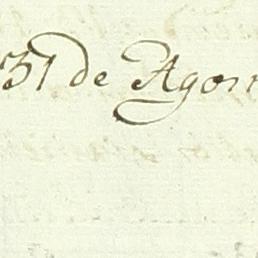 31 de Agos